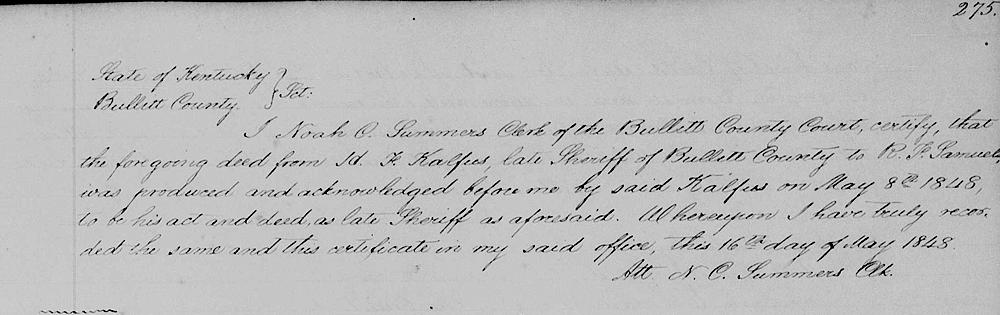 275.
State of Kentucky } Sct:
Bullitt County
I Noah C. Summers Clerk of the Bullitt County Court, certify, that
the foregoing deed from H. F. Kalfus, late Sheriff of Bullitt County to R. F. Samuels,
was produced and acknowledged before me by said Kalfus on May 8th 1848,
to be his act and deed, as late Sheriff as aforesaid. Whereupon I have truly recor-
ded the same and this certificate in my said office, this 16th day of May 1848.
Att. N. C. Summers Clk.